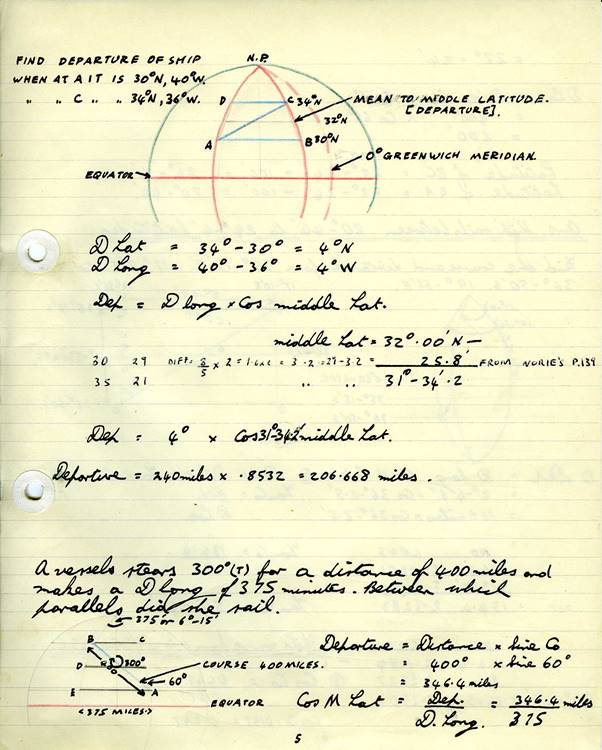 FIND DEPARTURE OF SHIP
WHEN AT A IT IS 30°N, 40°W.
" " C " " 34°N, 36°W.
N.P.
D C 34°N
MEAN TO MIDDLE LATITUDE.
[DEPARTURE].
32°N
A B 30°N
0° GREENWICH MERIDIAN.
EQUATOR
D Lat = 34° - 30° = 4°N
D Long = 40° - 36° = 4°W
Dep = D long × Cos middle Lat.
middle Lat = 32°.00'N —
30 29 DIFF= 8/5 × 2 = 1.6×2 = 3.2 = 29-3.2 = 25.8' FROM NORIE'S P.139
35 21 " " 31° - 34'.2
Dep = 4° × Cos 31°-34.2' middle Lat.
Departure = 240 miles × .8532 = 206.668 miles.
A vessels steers 300°(T) for a distance of 400 miles and
makes a D Long of 375 minutes. Between which
parallels did she sail.
375' or 6°-15'
B C
D 300°
COURSE 400 MILES.
60°
E A
EQUATOR
<375 MILES>
Departure = Distance × Sine Co
= 400° × Sine 60°
= 346.4 miles
Cos M Lat = Dep. / D. Long. = 346.4 miles / 375
5